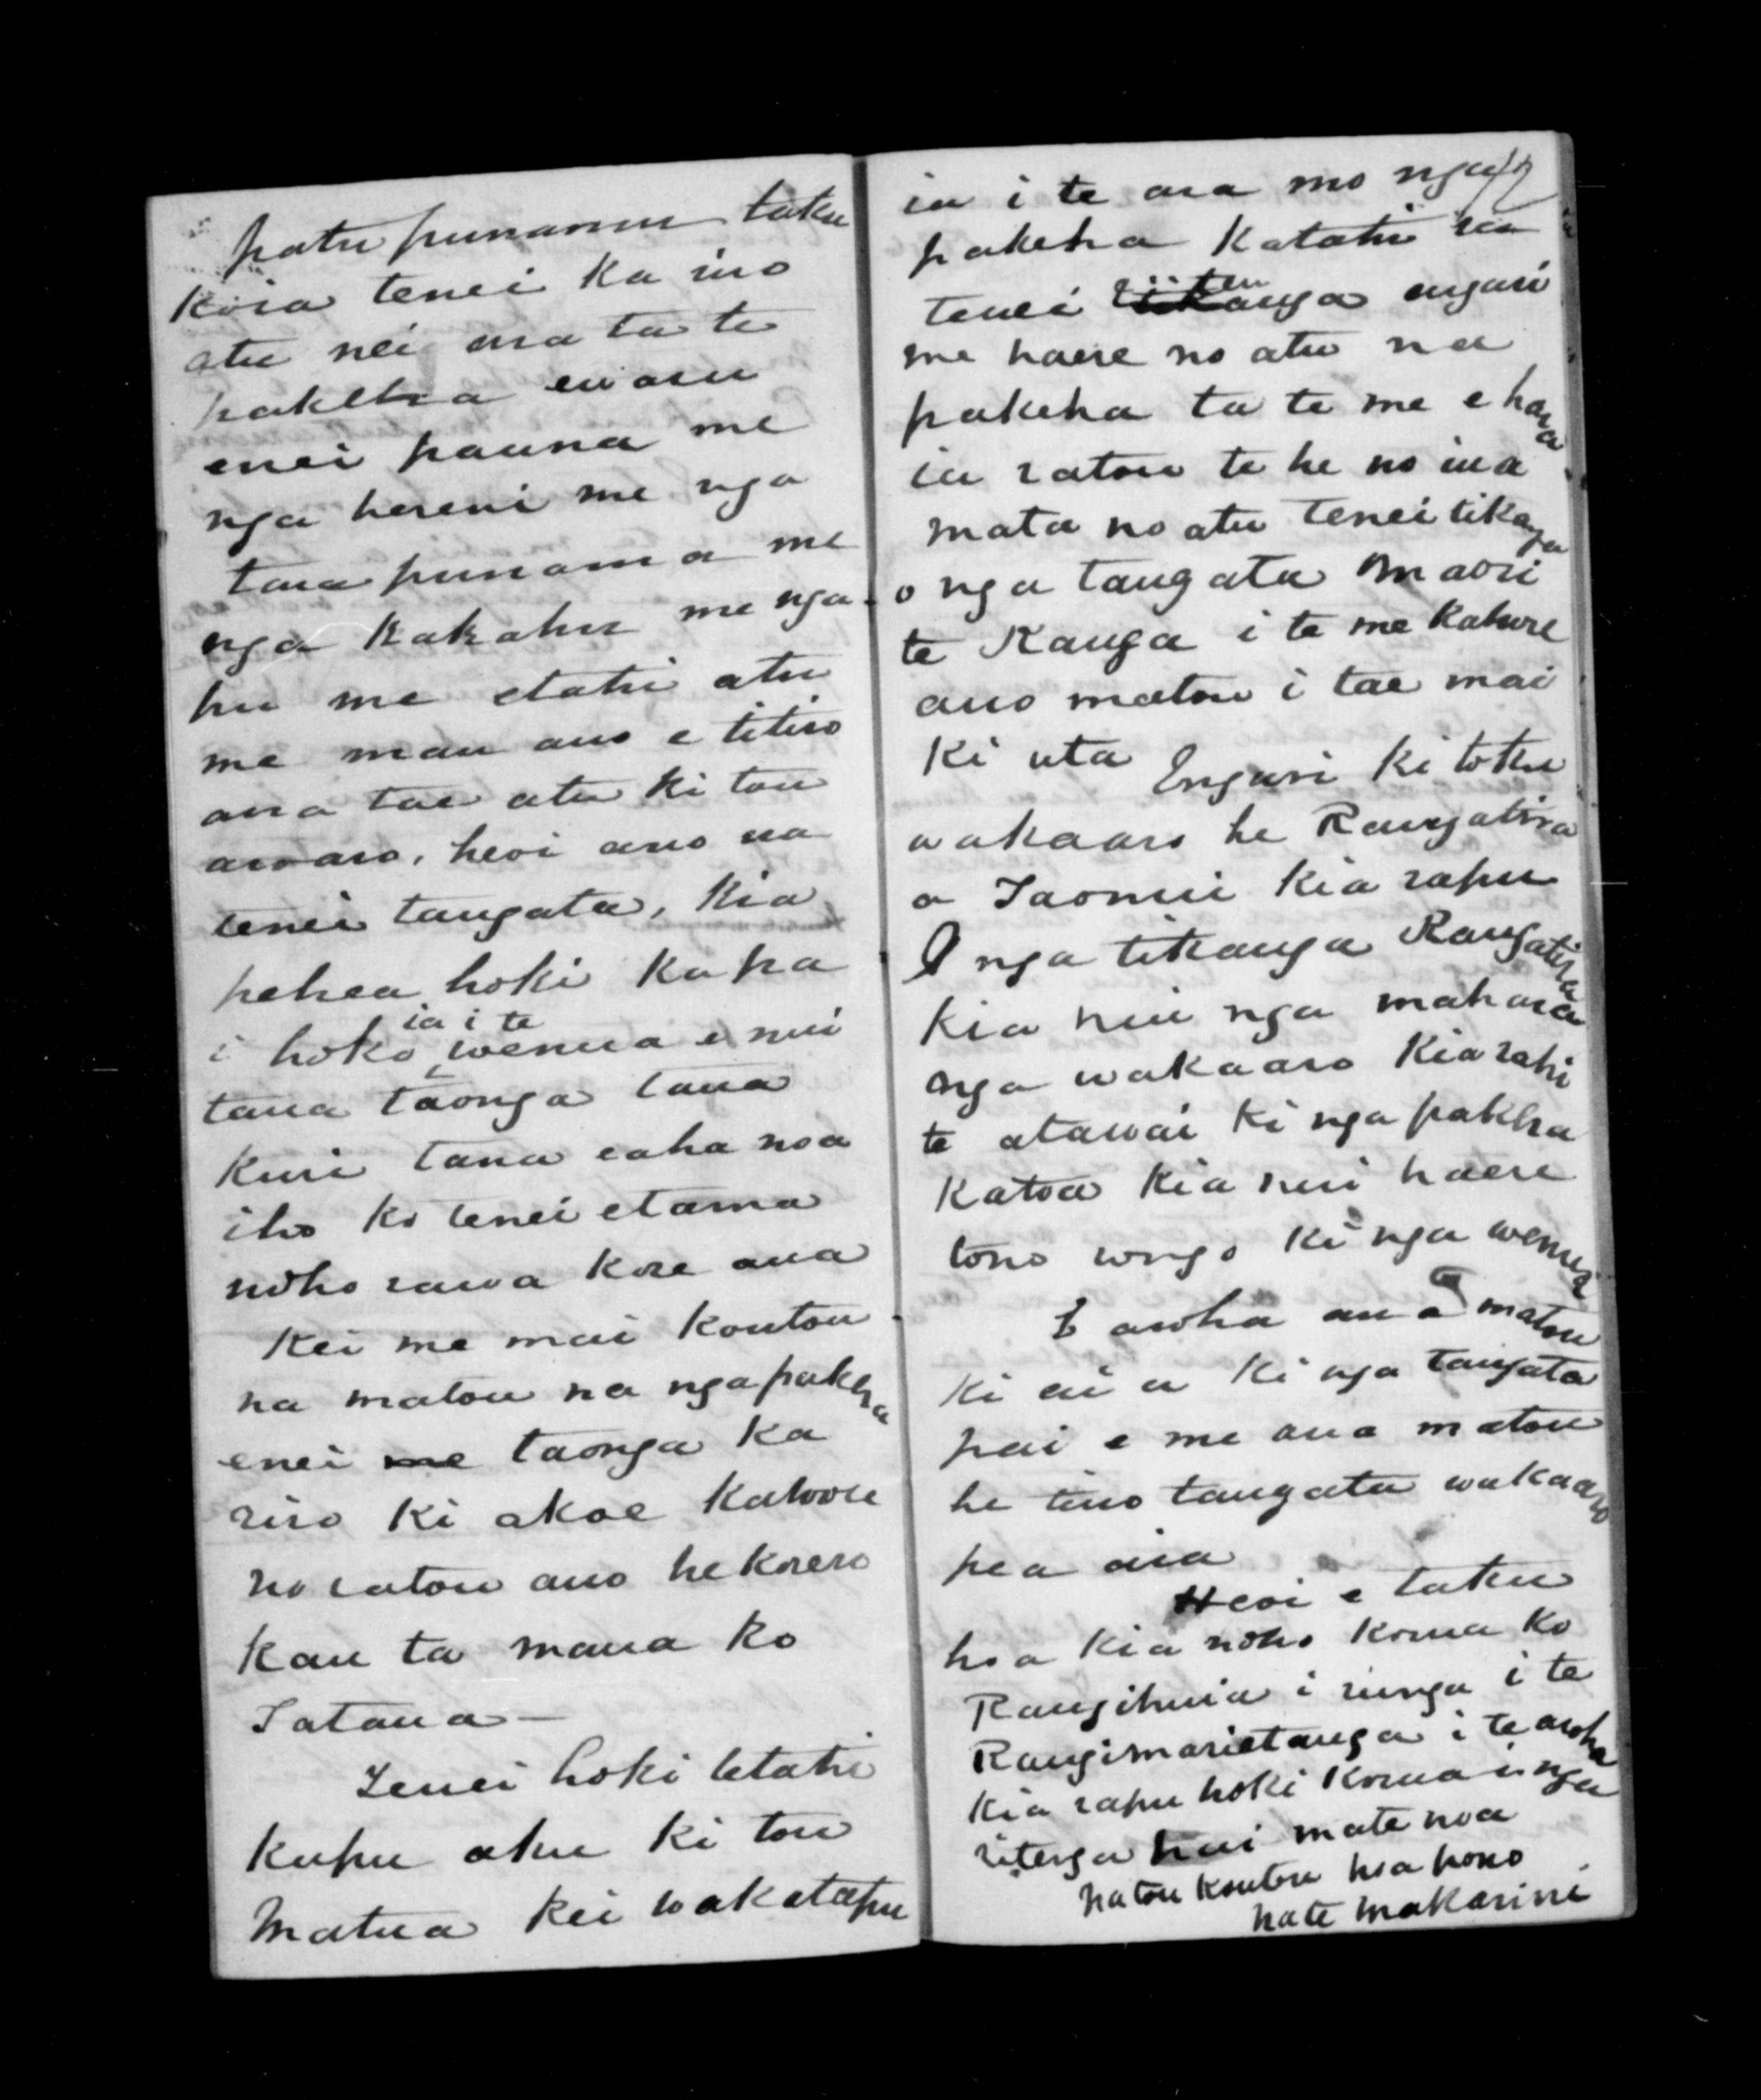 patu punamu taku
koia tenei ka riro
atu nei ma ta te
pakeha e waru
enei pauna me
nga hereni me nga
tara punama me
nga kakahu me nga
hu me etahi atu
me mau ano e titiro
ana tae atu ki tou
aroaro, heoi ano na
tenei tangata, kia
pehea hoki kapa
ia i te
i hoko wenua e nui
tana taonga tana
kuri tana eaha noa
iho ko tenei etama
noho rawa kore ana
Kei me mai koutou
na matou na nga pakeha
enei me taonga ka
riro ki akoe kahore
no ratou ano he korero
kau ta maua ko
Tatana —
Tenei hoki tetahi
kupu aku ki tou
Matua kei wakatapu
ia i te ara mo nga
pakeha Katahi ra
ten
tenei ritenga engari
me haere no atu na
pakeha ta te me e hara
ia ratou te he no ina
mata no atu tenei tikanga
o nga tangata Maori
te Ranga i te me kahore
ano matou i tae mai
Ki uta Engari ki toku
wakaaro he Rangatira
a Taonui kia rapu
I nga tikanga Rangatira
Kia nui nga mahara
nga wakaaro Kia rahi
te atawai ki nga pakeha
Katoa kia nui haere
tono ingo ki nga wenua
E aroha ana matou
ki ai a ki nga tangata
pai e me ana matou
he tino tangata wakaaro
pea aia
Heoi e taku
hoa kia noho korua ko
Rangihuia i runga i te
Rangimarietanga i te aroha
kia rapu hoki korua i nga
ritenga hui mate noa
na tou koutou hoa pono
na te Makarini